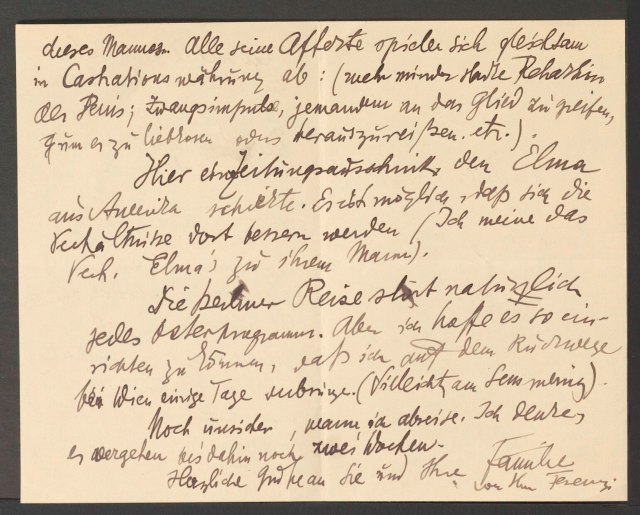 dieses Mannes. Alle seine Affekte spielen sich gleichsam
in Castrationswährung ab: (mehr minder starke Retraktion
des Penis; Zwangsimpulse, jemandem an das Glied zu greifen,
um es zu liebkosen oder herauszureißen. etc.).
Hier ein Zeitungsausschnitt, den Elma
aus Amerika schickte. Es ist möglich, daß sich die
Verhältnisse dort bessern werden (Ich meine das
Verh. Elma's zu ihrem Mann).
Die Berliner Reise stört natürlich
jedes Osterprogramm. Aber ich hoffe es so ein-
richten zu können, daß ich auf dem Rückwege
bei Wien einige Tage verbringe. (Vielleicht am Semmering).
Noch unsicher, wann ich abreise. Ich denke,
es vergehen bis dahin noch zwei Wochen.
Herzliche Grüße an Sie und Ihre Familie
von Ihrem Ferenczi